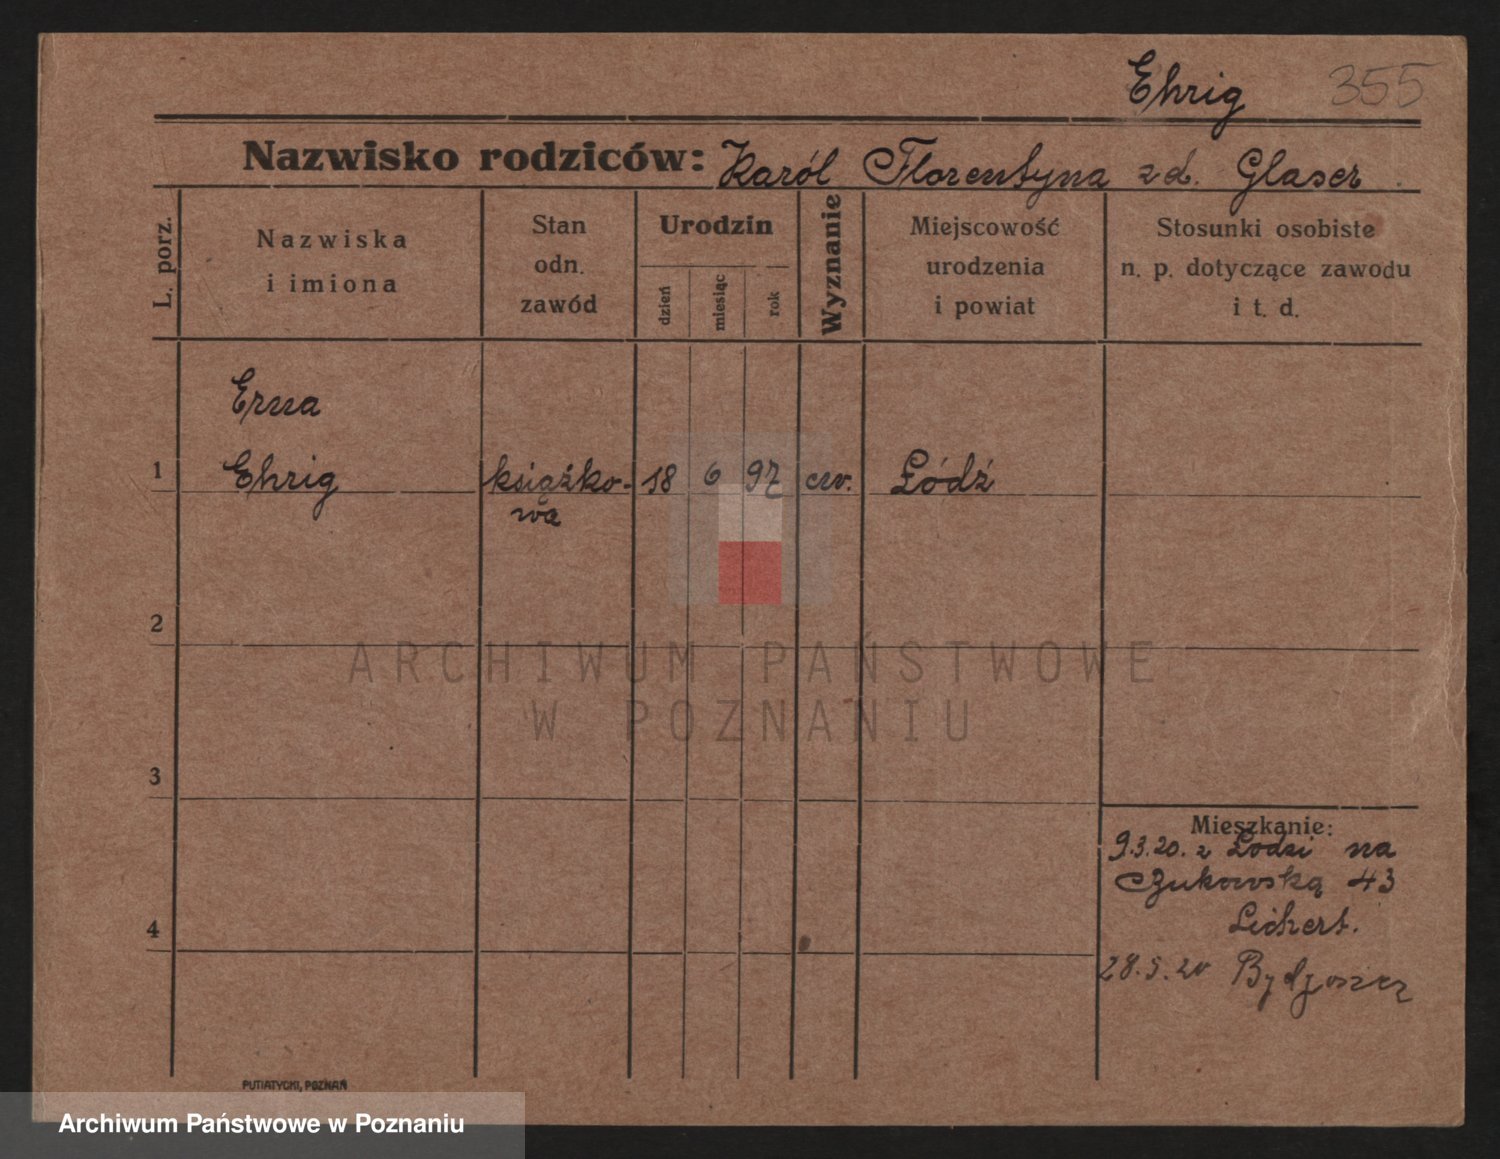 Ehrig 355
Nazwisko rodziców: Karól Florentyna zd. Glaser
L. porz.
Nazwiska
i imiona
Stan
odn.
zawód
Urodzin
dzień
miesiąc
rok
Wyznanie
Miejscowość
urodzenia
i powiat
Stosunki osobiste
n. p. dotyczące zawodu
i t. d.
Erna
1 Ehrig książko- 18 6 97 ew. Łódź
wa
2
3
4
Mieszkanie:
9.3.20. z Łodzi na
Żukowską 43
Lichert.
28.5.20 Bydgoszcz
ARCHIWUM PAŃSTWOWE
W POZNANIU
PUTIATYCKI, POZNAŃ
Archiwum Państwowe w Poznaniu